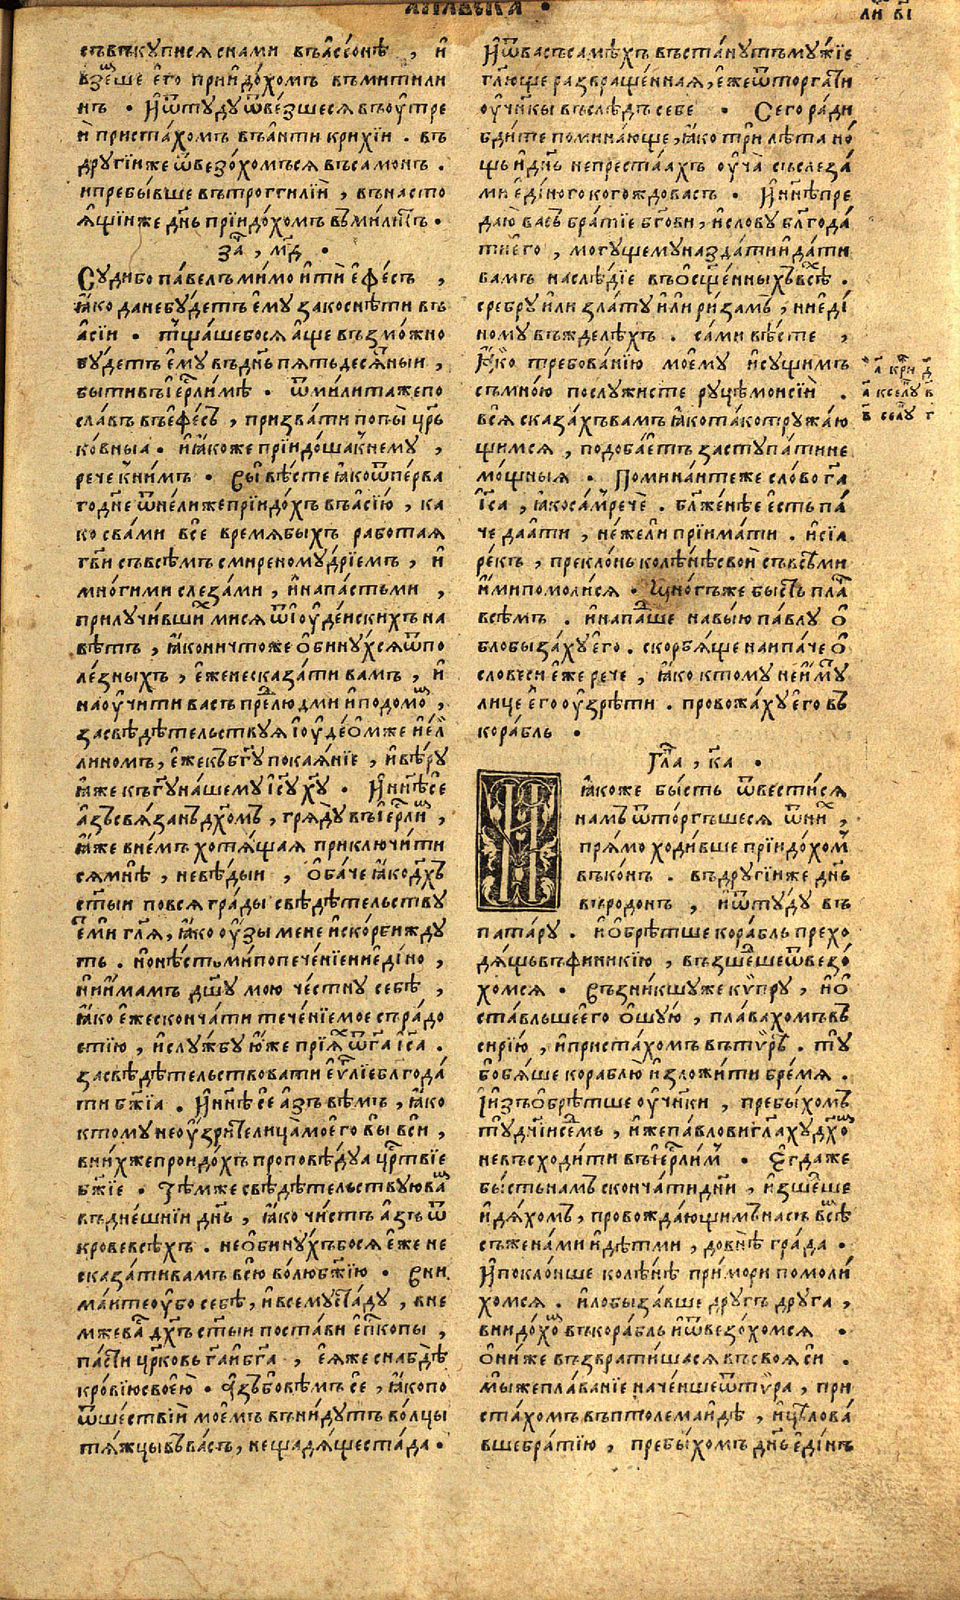 съвъкупися снами въ а́ссонѣ , и҆
взе́мше є҆го̀ прїидо́хомъ въ митили
нъ . И҆ ѿту́ду ѿве́зшеся въ оу҆́тре
и҆ приста́хомъ въ а҆нти крихі́и . въ
другі́и же ѿвезо́хомъся въ са́монъ .
и пребы́вше въ трогги́лїи , въ насто
ѧ́щїи же дн҃ь прїидо́хомъ въ мили́тъ .
за҃ , м҃д .
Суди бо па́велъ мимо ити є҆фе́съ ,
ꙗ҆́ко да не бу́детъ є҆му̀ закосни́ти въ
а҆сі́и . тща́шебося а҆́ще възмо́жно
бу́детъ є҆му̀ въ дн҃ь пятьдеся́тныи ,
бы́ти въ і҆ер҃ли́мѣ . ѿ мили́та же по
сла́въ въ є҆фе́съ , призва́ти попы̀ цр҃ь
ко́вныꙗ . и҆ ꙗ҆́коже прїидо́ша к нему̀ ,
речѐ к ни́мъ . Вы̀ вѣ́сте ꙗ҆́ко ѿ пе́рва
го дне ѿ не́лиже прїидо́хъ въ а҆сі́ю , ка
ко с ва́ми всѐ вре́мя бы́хъ рабо́тая
гв҃и съ всѣ́мъ смиреному́дрїемъ , и҆
мно́гими слеза́ми , и҆ напа́стьми ,
прилучи́вшимися ѿ і҆оуде́искихъ на
вѣ́тъ , ꙗ҆́ко ничто́же ѡ҆бину́хся ѿ по
ле́зныхъ , є҆́же не сказа́ти ва́мъ , и҆
на оу҆чи́ти ва́съ пре́д людмѝ и҆ по домо́м ,
засвѣдѣ́тельствуя і҆оуде́омже и҆ е́л
лином , є҆́же къ бг҃у покая́нїе , и҆ вѣ́ру
ꙗ҆́же къ гу҃ на́шему і҆су҃ ху҃ . И҆ нн҃ѣ се́
а҆́зъ свя́занъ дх҃омъ , гряду̀ въ і҆ер҃ли́м ,
ꙗ҆́же в не́мъ хотя́щая приключи́ти
ся мнѣ̀ , не вѣ́дыи , ѡ҆ба́че ꙗ҆́ко дх҃ъ
ст҃ыи по вся гра́ды свѣдѣ́тельству
етъ ми гл҃я , ꙗ҆́ко оу҆́зы мене и҆ ско́рби жду
тъ . но ни є҆ди́но ми попече́нїе ни є҆ди́но ,
ни и҆́мамъ дш҃у мою че́стну себѣ̀ ,
ꙗ҆́ко є҆́же сконча́ти тече́нїе мое съ ра́до
стїю , и҆ слу́жбу ю҆́же прїя́х ѿ га҃ і҆са҃ .
засвѣдѣ́тельствовати є҆у҃лїе блгода́
ти бж҃їа . И҆ нн҃ѣ сѐ а҆́зъ вѣ́мъ , ꙗ҆́ко
ктому̀ не оу҆́зрите лица̀ моего̀ вы̀ вси ,
в ни́хже прои́дохъ проповѣ́дуа цр҃твїе
бж҃їе . Тѣ́мже свѣдѣ́тельствую ва́м
въ дне́шнїи дн҃ь , ꙗ҆́ко чи́стъ а҆́зъ ѿ
крове всѣ́хъ . не ѡ҆бину́хъбося є҆́же не
сказа́ти ва́мъ всю̀ во́лю бж҃їю . Вни
ма́ите оу҆́бо себѣ̀ , и҆ всему̀ ста́ду , вне
мже ва́с дх҃ъ ст҃ыи поста́ви є҆пк҃опы ,
пастѝ цр҃ковь га҃ и҆ бг҃а , є҆́яже снабдѣ̀
кро́вїю свое́ю . А҆́зъ бо вѣ́мъ се , ꙗ҆́ко по
ѿше́ствїи мое́мъ въни́дутъ во́лцы
тя́жцы въ ва́съ , не щадя́ще ста́да .
И҆ ѿ ва́съ самѣ́хъ въста́нутъ му́жїе
гл҃юще развраще́нная , є҆́же ѿторга́ти
оу҆ч҃нкы въ слѣ́дъ себѐ . Сего̀ ра́ди
бди́те помина́юще , ꙗ҆́ко трѝ лѣ́та но́
щь и҆ дн҃ь не преста́ахъ оу҆ча̀ съ слеза́
ми є҆ди́ного кого́ждо ва́съ . И҆ нн҃ѣ пре
даю̀ ва́съ бра́тїе бг҃ови , и҆ сло́ву блг҃ода́
ти є҆го̀ , могу́щему назда́ти и҆ да́ти
ва́мъ наслѣ́дїе въ ѡ҆сщ҃е́нныхъ всѣ́х .
сребру̀ и҆ли зла́ту и҆ли ри́замъ , ни є҆ди́
ному въжделѣ́хъ . са́ми вѣ́сте ,
Ꙗ҆́ко тре́бованїю моему̀ и҆ су́щимъ
съ мно́ю послужи́сте ру́цѣ мои́сїи .
вся̀ сказа́хъ ва́мъ ꙗ҆́ко та́ко тружа́ю
щимся , подоба́етъ заступа́ти не
мощныя . Помина́ити же сло́во га҃
і҆са҃ , ꙗ҆́ко са́м речѐ . блж҃е́нѣе є҆́сть па́
че дая́ти , не́жели прїима́ти . и҆ сїа̀
ре́къ , прекло́нь колѣ́нѣ своѝ съ всѣ́ми
и҆́ми помоли́ся . Мно́гъ же бы́сть пла́ч
всѣ́мъ . и҆ напа́дше на вы́ю па́влу ѡ҆
блобыза́ху є҆го̀ . скорбя́ще наипа́че ѡ҆
словесѝ є҆́же рече , ꙗ҆́ко ктому̀ не и҆́му́т
лицѐ є҆го̀ оу҆зрѣ́ти . провожа́ху є҆го въ
кора́бль .
Гла҃ , к҃а .
ꙗ҆́коже бы́сть ѿвести́ся
на́мъ ѿто́ргъшеся ѿ ни́х ,
пря́мо ходи́вше прїидо́хом
въ ко́нъ . въ другі́и же дн҃ь
въ ро́донъ , и҆ ѿту́ду въ
пата́ру . и҆ ѡ҆брѣ́тше кора́бль прехо
дя́щь въ финики́ю , възше́дше ѿвезо́
хомся . Възни́кшу же ки́пру , и҆ ѡ҆
ста́вльше є҆го̀ ѡ҆шу́ю , пла́вахомъ въ
сирі́ю , и҆ приста́хомъ въ ти́ръ . ту̀
бо бя́ше кораблю̀ и҆зложи́ти бре́мя .
І҆ и҆зъѡ҆брѣ́тше оу҆ч҃нки , пребы́хомъ
ту̀ дн҃їи се́дмь , и҆́же па́влови гл҃аху дх҃ом
не въсходи́ти въ і҆ер҃ли́м . Є҆гда́ же
бы́сть на́мъ сконча́ти дн҃и , и҆зше́дше
и҆дя́хомъ , провожда́ющимъ на́съ всѣ́м
съ жена́ми и҆ дѣтми , до внѣ̀ гра́да .
И҆ покло́нше колѣ́нѣ при мо́ри помоли́
хомся . и҆ лобыза́вше дру́гъ дру́га ,
внидо́хом въ кора́бль и҆ ѿвезо́хомся .
ѻ҆ни́ же възврати́шася въ своя̀ си .
мы́ же пла́ванїе наче́нше ѿ ти́ра , при
ста́хомъ въ птолемаи́дѣ , и҆ цѣлова́
вше бра́тїю , пребы́хомъ дн҃ь є҆ди́нъ